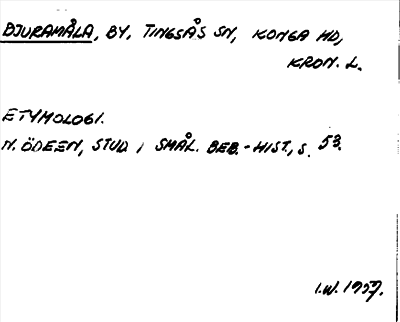 DJURAMÅLA, BY, TINGSÅS SN, KONGA HD,
KRON. L.
ETYMOLOGI.
N. ÖDEEN, STUD. I SMÅL. BEB.-HIST., S. 53.
I.W. 1937.